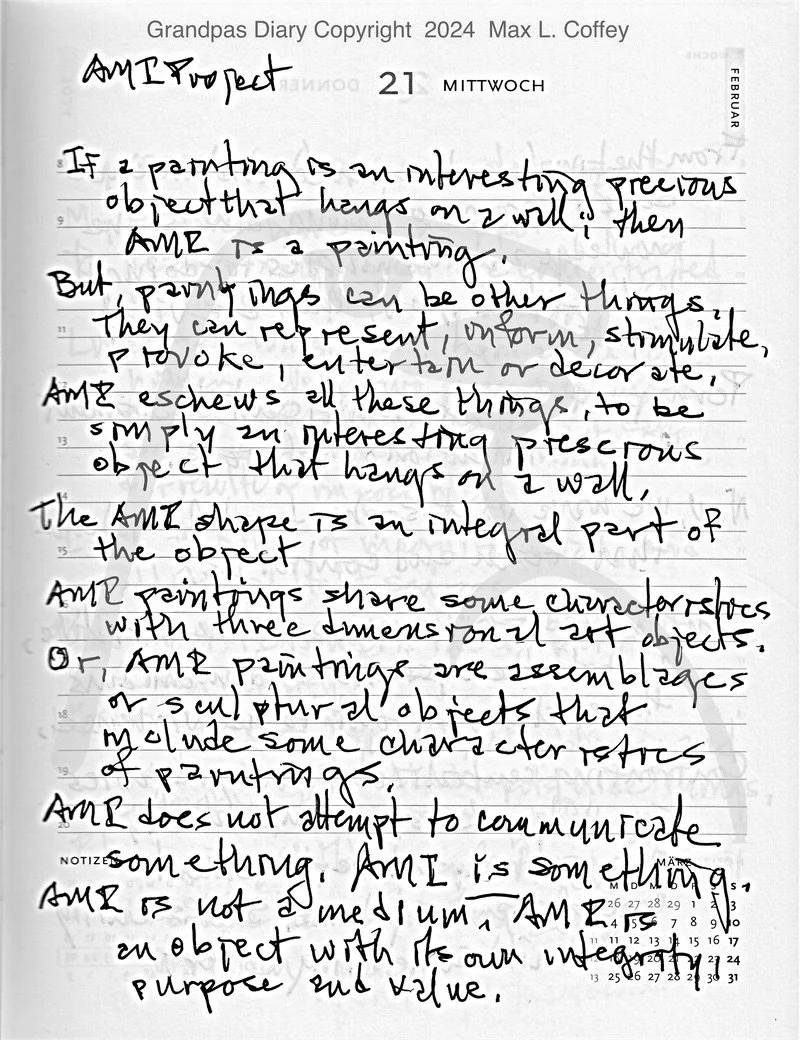 Grandpas Diary Copyright 2024 Max L. Coffey
AMI Project
21 MITTWOCH
FEBRUAR
If a painting is an interesting precious
object that hangs on a wall; then
AMI is a painting.
But, paintings can be other things.
They can represent, inform, stimulate,
provoke, entertain or decorate.
AMI eschews all these things, to be
simply an interesting prescious
object that hangs on a wall.
The AMI shape is an integral part of
the object
AMI paintings share some characteristics
with three dimensional art objects.
Or, AMI paintings are assemblages
or sculptural objects that
include some characteristics
of paintings.
AMI does not attempt to communicate
something. AMI is something.
AMI is not a medium, AMI is
an object with its own integrity,
purpose and value.
8
9
11
13
15
18
19
20
NOTIZEN
MÄRZ
M D M D F S S
26 27 28 29 1 2 3
4 5 6 7 8 9 10
11 11 12 13 14 15 16 17
18 19 20 21 22 23 24
13 25 26 27 28 29 30 31